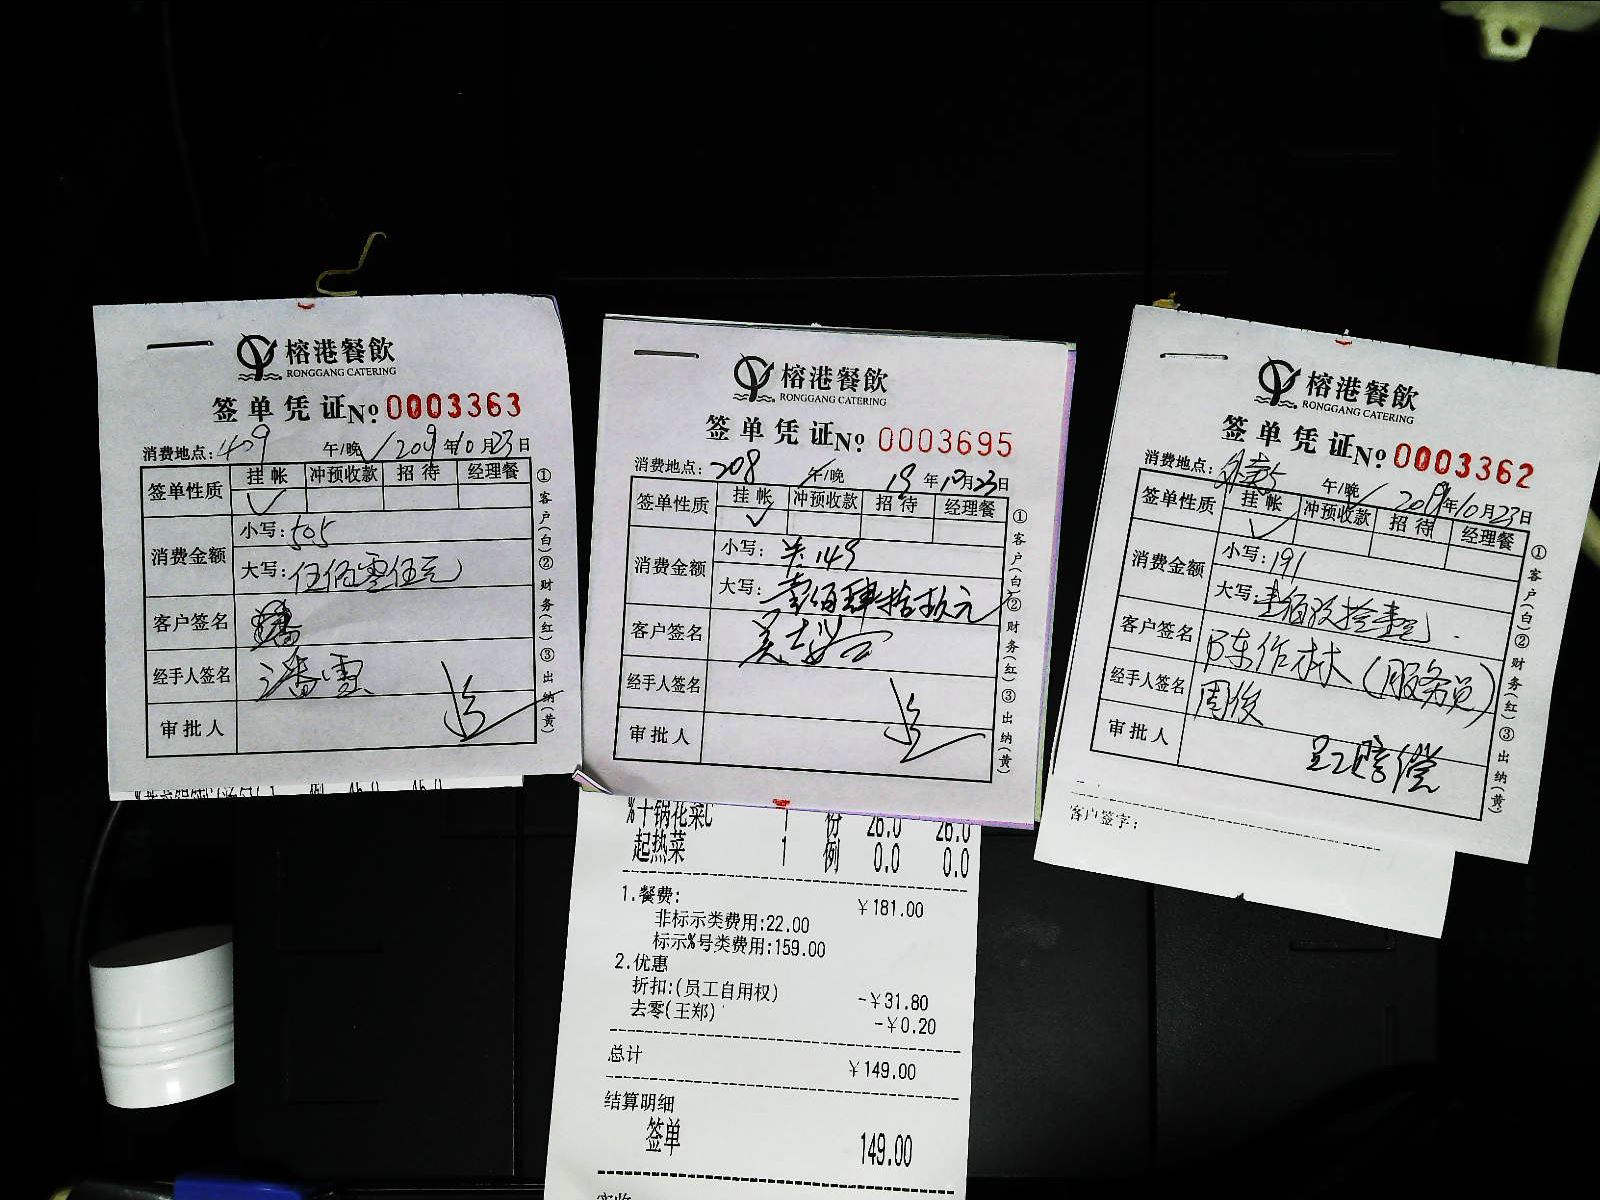 榕港餐飲
RONGGANG CATERING
签单凭证 No 0003363
消费地点: 409 午/晚 2019年10月23日
签单性质 挂帐 冲预收款 招待 经理餐
消费金额 小写: 505
大写: 伍佰零伍元
客户签名
经手人签名 潘雪
审批人
①客户(白)②财务(红)③出纳(黄)
榕港餐飲
RONGGANG CATERING
签单凭证 No 0003695
消费地点: 208 午/晚 19年10月23日
签单性质 挂帐 冲预收款 招待 经理餐
消费金额 小写: 149
大写: 壹佰肆拾玖元
客户签名
经手人签名
审批人
①客户(白)②财务(红)③出纳(黄)
%干锅花菜C 1 份 26.0 26.0
起热菜 1 例 0.0 0.0
1.餐费: ¥181.00
非标示类费用:22.00
标示%号类费用:159.00
2.优惠
折扣:(员工自用权) -¥31.80
去零(王郑) -¥0.20
总计 ¥149.00
结算明细
签单 149.00
榕港餐飲
RONGGANG CATERING
签单凭证 No 0003362
消费地点: 午/晚 2019年10月23日
签单性质 挂帐 冲预收款 招待 经理餐
消费金额 小写: 191
大写: 壹佰玖拾壹元
客户签名 陈作林(服务员)
经手人签名 周俊
审批人 员工赔偿
①客户(白)②财务(红)③出纳(黄)
客户签字: